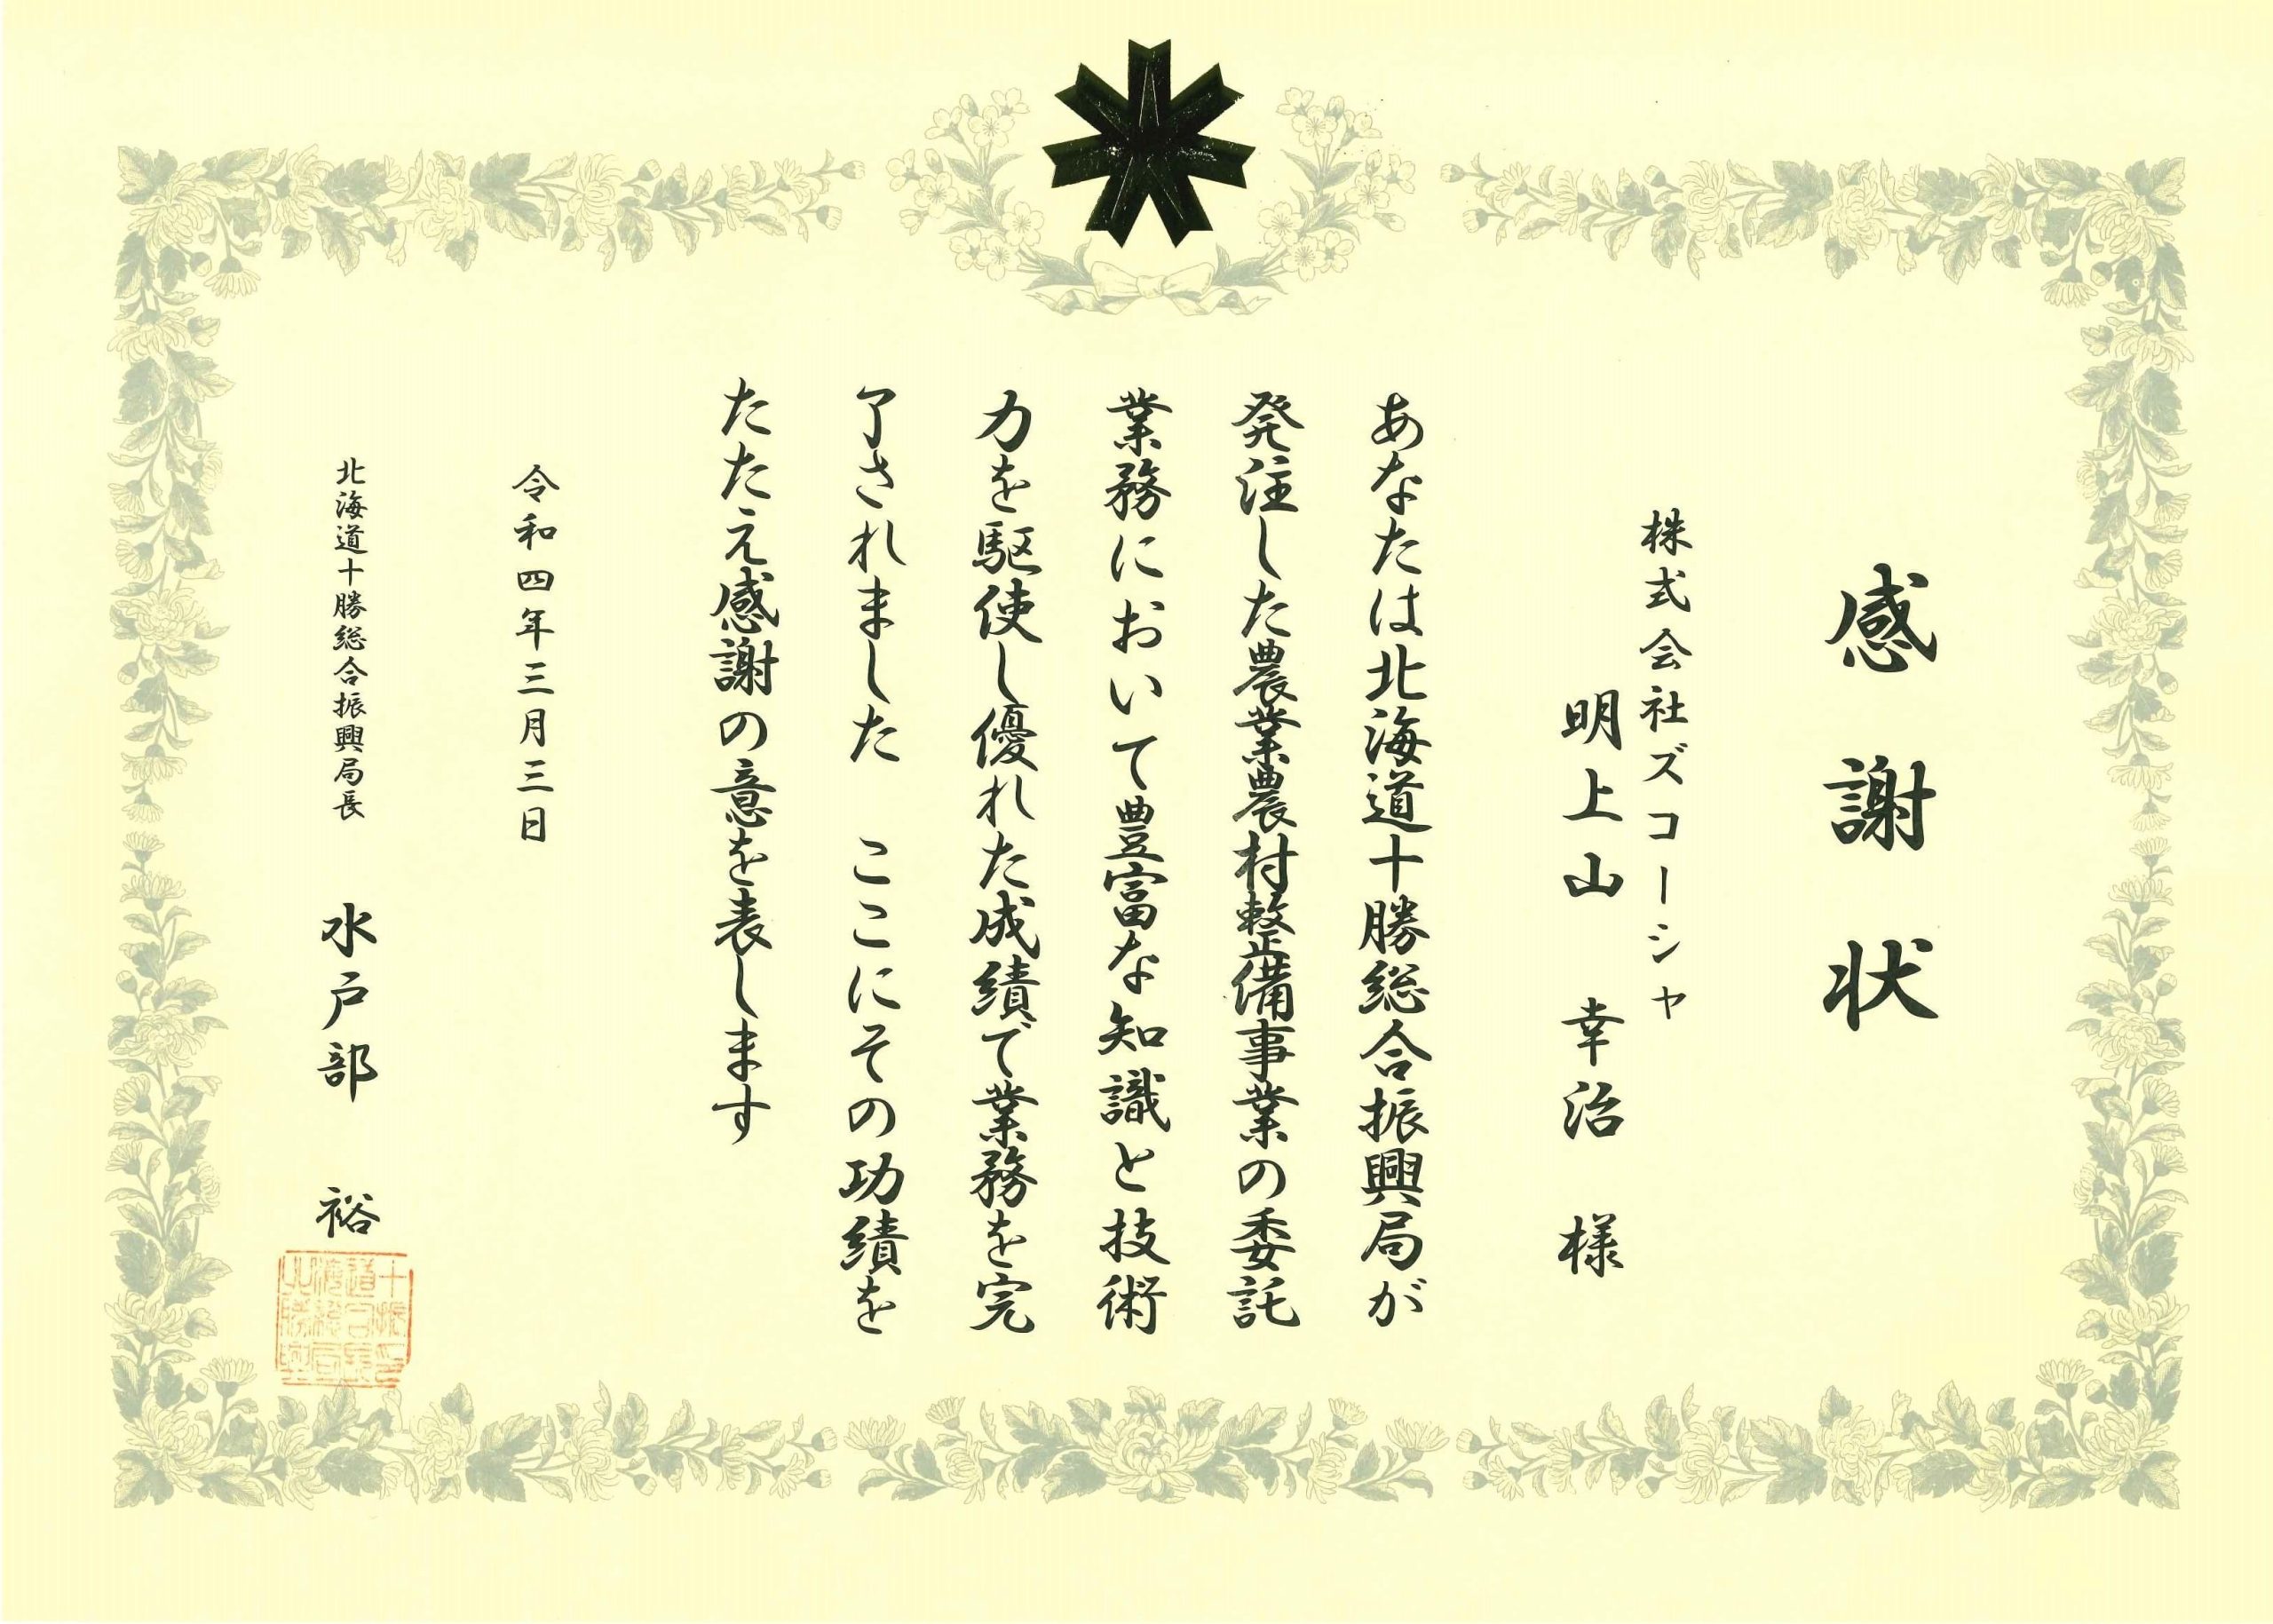 感謝状
株式会社ズコーシャ
明上山 幸治 様
あなたは北海道十勝総合振興局が
発注した農業農村整備事業の委託
業務において豊富な知識と技術
力を駆使し優れた成績で業務を完
了されました ここにその功績を
たたえ感謝の意を表します
令和四年三月三日
北海道十勝総合振興局長 水戸部 裕